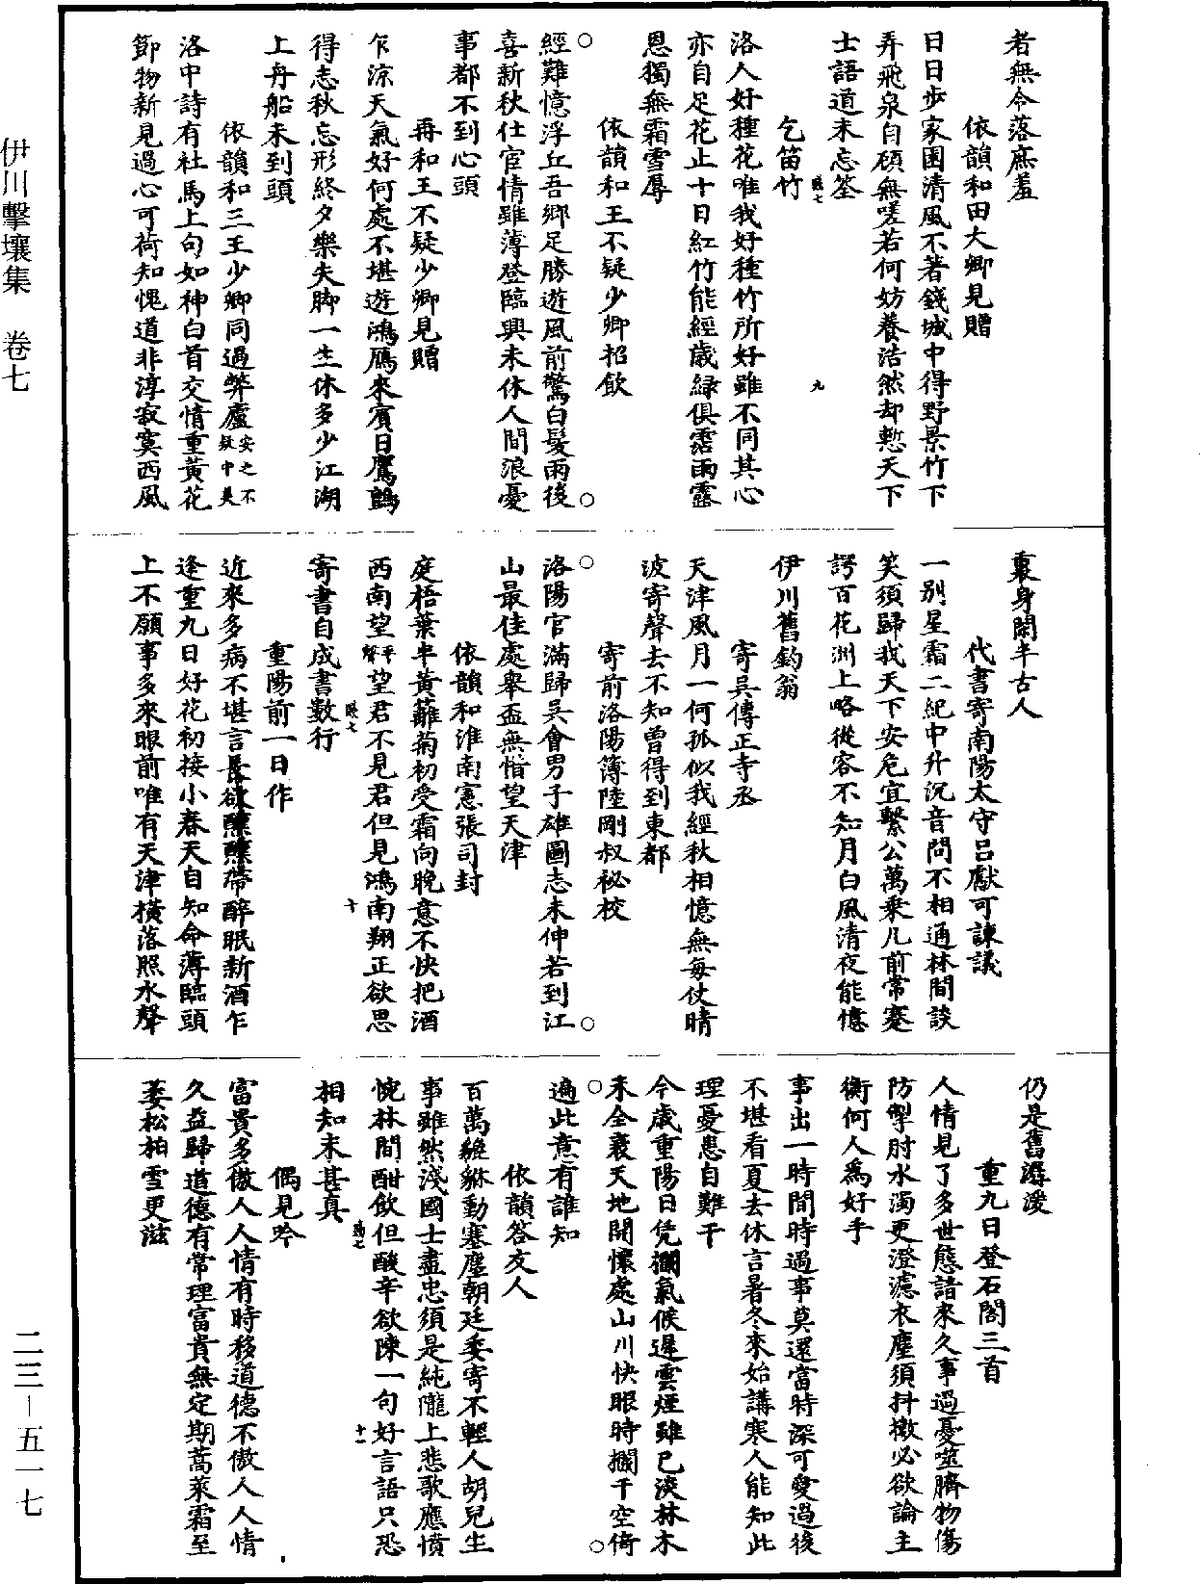 伊川擊壤集　卷七
者無令落庶羞
依韻和田大卿見贈
日日步家園清風不著錢城中得野景竹下
弄飛泉自顧無嗟若何妨養浩然却慙天下
士語道未忘筌
乞笛竹
洛人好種花唯我好種竹所好雖不同其心
亦自足花止十日紅竹能經歲綠俱霑雨露
恩獨無霜雪辱
依韻和王不疑少卿招飲
經難憶浮丘吾鄉足勝遊風前驚白髮雨後
喜新秋仕宦情雖薄登臨興未休人間浪憂
事都不到心頭
再和王不疑少卿見贈
乍涼天氣好何處不堪遊鴻鴈來賓日鷹鸇
得志秋忘形終夕樂失脚一生休多少江湖
上舟船未到頭
依韻和三王少卿同過弊廬安之不疑中美
洛中詩有社馬上句如神白首交情重黃花
節物新見過心可荷知愧道非淳寂寞西風
裏身閑半古人
代書寄南陽太守呂獻可諫議
一別星霜二紀中升沉音問不相通林間談
笑須歸我天下安危宜繫公萬乘几前常蹇
諤百花洲上略從容不知月白風清夜能憶
伊川舊釣翁
寄吳傳正寺丞
天津風月一何孤似我經秋相憶無每仗晴
波寄聲去不知曾得到東都
寄前洛陽簿陸剛叔祕校
洛陽官滿歸吳會男子雄圖志未伸若到江
山最佳處舉盃無惜望天津
依韻和淮南憲張司封
庭梧葉半黃蘺菊初受霜向晚意不快把酒
西南望平聲望君不見君但見鴻南翔正欲思
寄書自成書數行
重陽前一日作
近來多病不堪言長欲醺醺帶醉眠新酒乍
逢重九日好花初接小春天自知命薄臨頭
上不願事多來眼前唯有天津橫落照水聲
仍是舊潺湲
重九日登石閣三首
人情見了多世態諳來久事過憂噬臍物傷
防掣肘水濁更澄濾衣塵須抖擻必欲論主
衡何人爲好手
事出一時間時過事莫還當時深可愛過後
不堪看夏去休言暑冬來始講寒人能知此
理憂患自難干
今歲重陽日凭欄氣候遲雲煙雖已淡林木
未全衰天地開懷處山川快眼時欄干空倚
遍此意有誰知
依韻答友人
百萬貔貅動塞塵朝廷委寄不輕人胡兒生
事雖然淺國士盡忠須是純隴上悲歌應憤
惋林間酣飲但酸辛欲陳一句好言語只恐
相知未甚真
偶見吟
富貴多傲人人情有時移道德不傲人人情
久益歸道德有常理富貴無定期蒿萊霜至
萎松柏雪更滋
二三－五一七